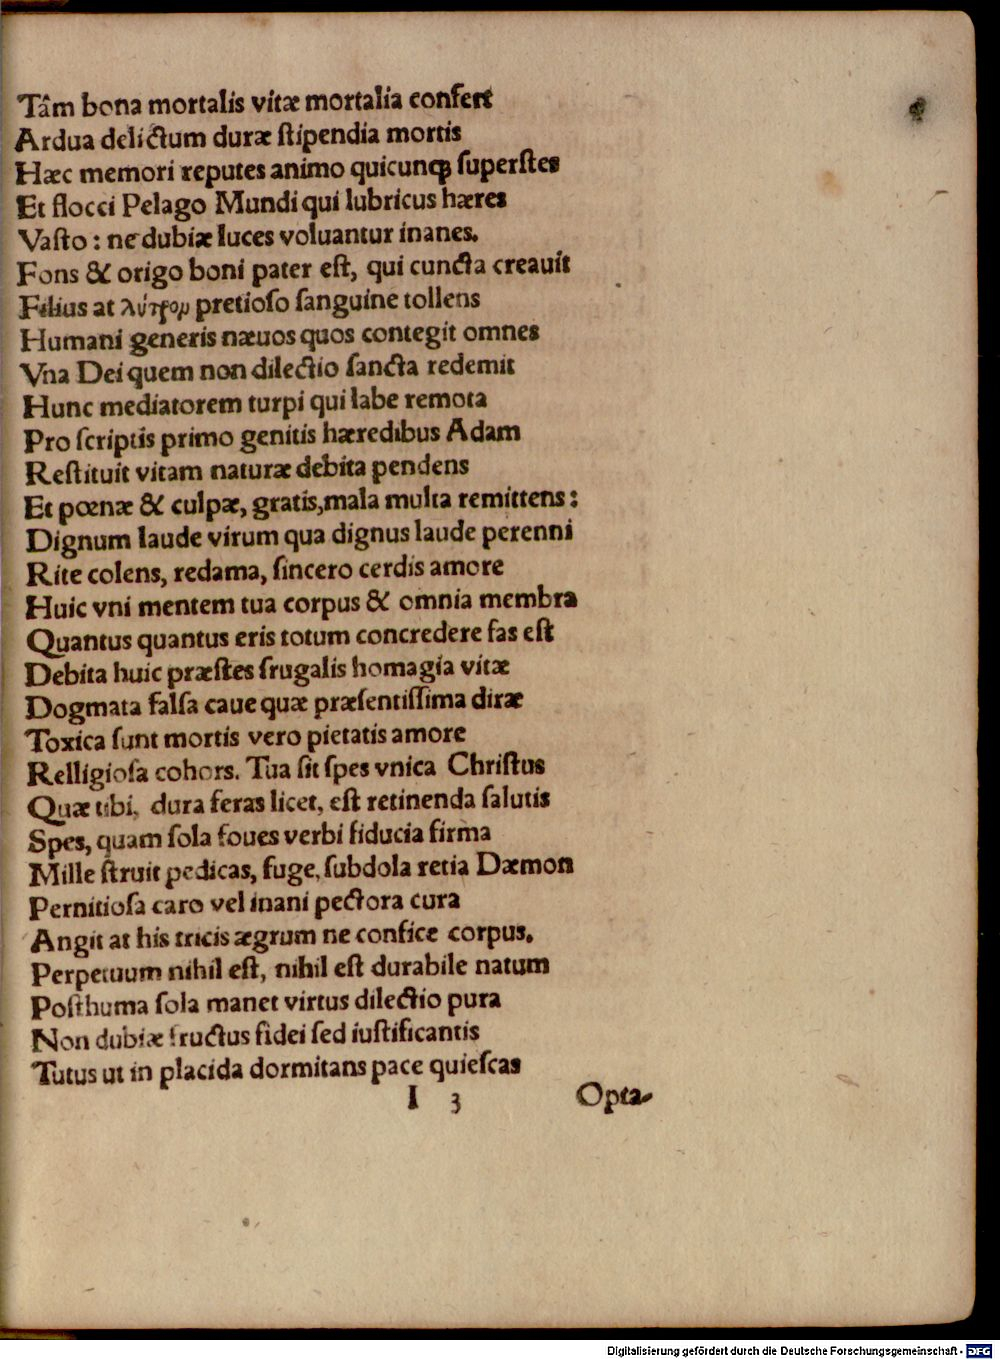 Tâm bona mortalis vitæ mortalia confert
Ardua delictum duræ ſtipendia mortis
Hæc memori reputes animo quicunqꝫ ſuperſtes
Et flocci Pelago Mundi qui lubricus hæres
Vaſto : ne dubiæ luces voluantur inanes.
Fons & origo boni pater eſt, qui cuncta creauit
Filius at λύτρον pretioſo ſanguine tollens
Humani generis næuos quos contegit omnes
Vna Dei quem non dilectio ſancta redemit
Hunc mediatorem turpi qui labe remota
Pro ſcriptis primo genitis hæredibus Adam
Reſtituit vitam naturæ debita pendens
Et pœnæ & culpæ, gratis,mala multa remittens :
Dignum laude virum qua dignus laude perenni
Rite colens, redama, ſincero cerdis amore
Huic vni mentem tua corpus & omnia membra
Quantus quantus eris totum concredere fas eſt
Debita huic præſtes frugalis homagia vitæ
Dogmata falſa caue quæ præſentiſſima diræ
Toxica ſunt mortis vero pietatis amore
Relligioſa cohors. Tua ſit ſpes vnica Chriſtus
Quæ tibi, dura feras licet, eſt retinenda ſalutis
Spes, quam ſola foues verbi fiducia firma
Mille ſtruit pedicas, fuge, ſubdola retia Dæmon
Pernitioſa caro vel inani pectora cura
Angit at his tricis ægrum ne confice corpus.
Perpetuum nihil eſt, nihil eſt durabile natum
Poſthuma ſola manet virtus dilectio pura
Non dubiæ fructus fidei ſed iuſtificantis
Tutus ut in placida dormitans pace quieſcas
I 3 Opta-
Digitalisierung gefördert durch die Deutsche Forschungsgemeinschaft - DFG